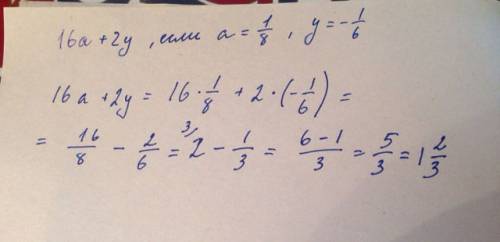 16a + 2y , если a = 1/8 , y = -1/6
16a + 2y = 16 · 1/8 + 2 · (-1/6) =
= 16/8 - 2/6 = ³⁄2 - 1/3 = 6-1/3 = 5/3 = 1 2/3